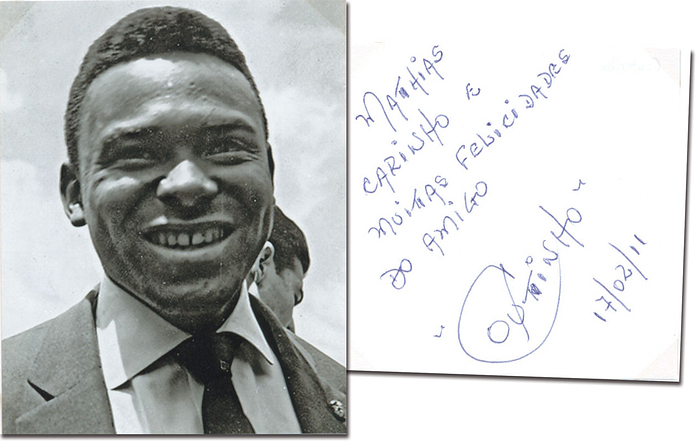 MATHIAS
CARINHO E
MUITAS FELICIDADES
DO AMIGO
" "
17/02/11